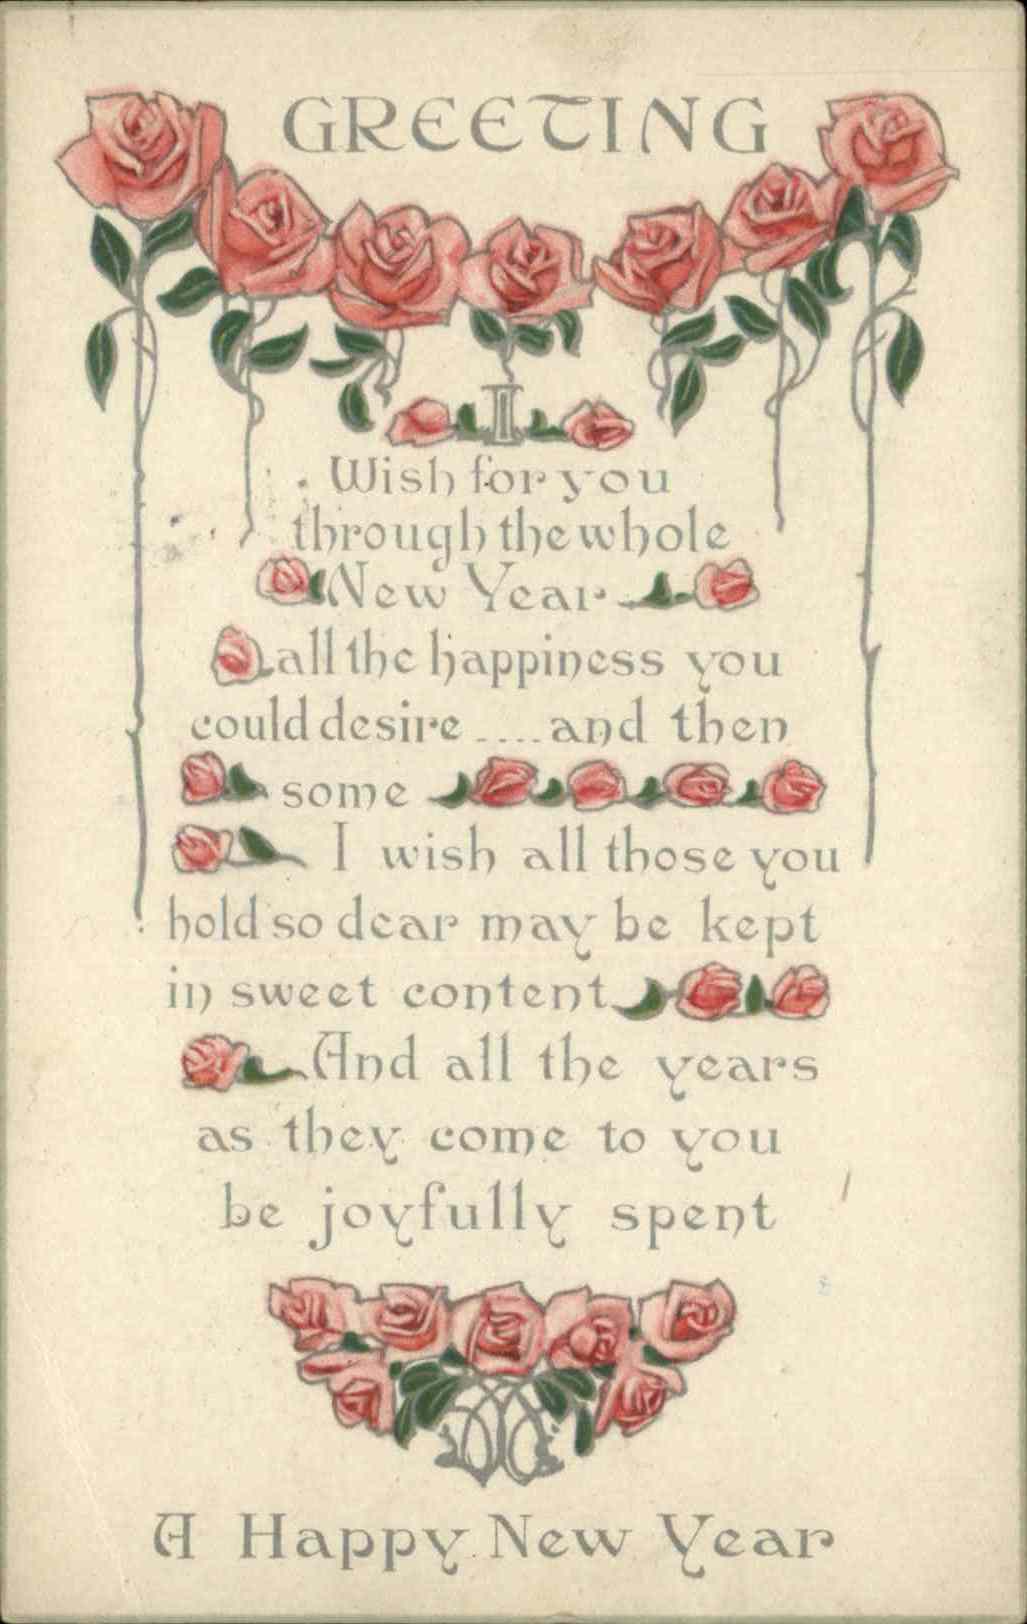 GREETING
I
Wish for you
through the whole
New Year
all the happiness you
could desire .... and then
some
I wish all those you
hold so dear may be kept
in sweet content
And all the years
as they come to you
be joyfully spent
A Happy New Year